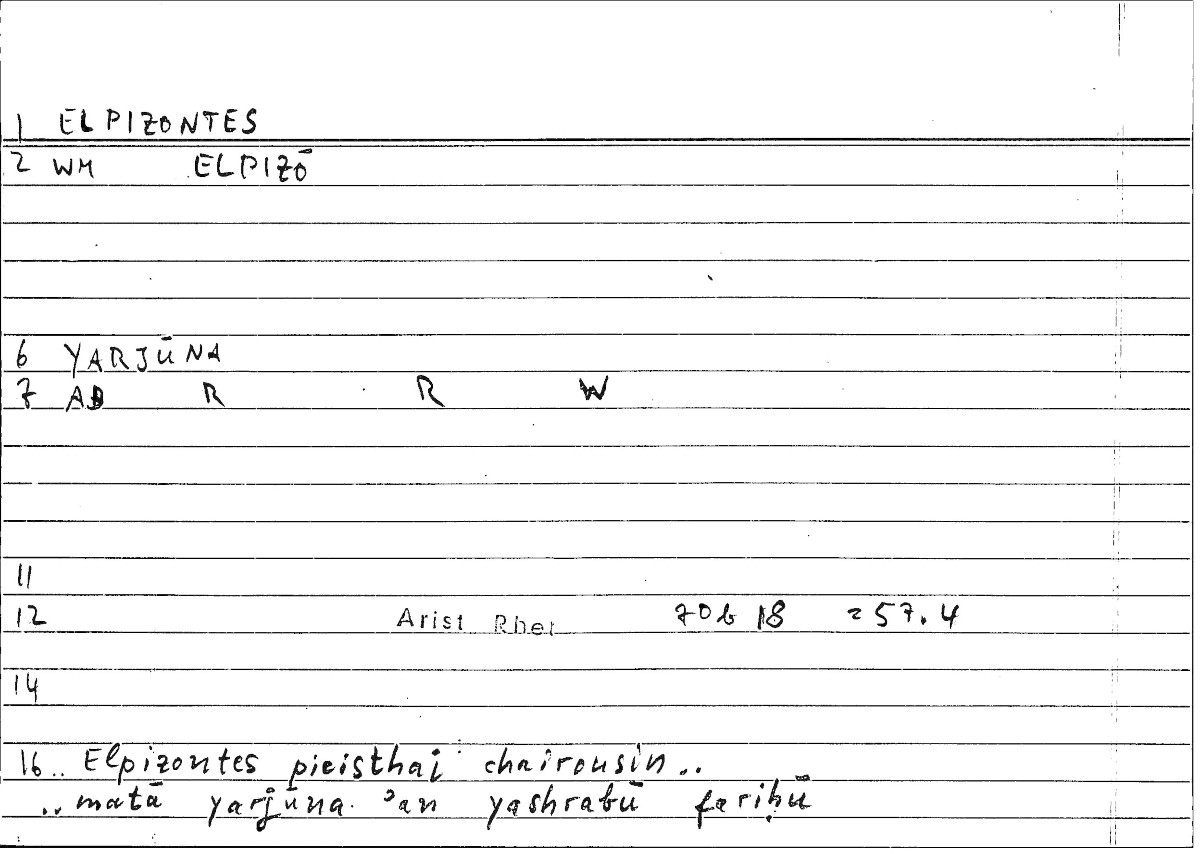 1 ELPIZONTES
2 WM ELPIZŌ
6 YARJŪNA
7 AB R R W
11
12 Arist Rhet 70b 18 = 57.4
14
16 .. Elpizontes pieisthai chairousin ..
.. matā yarjūna ʾan yashrabū fariḥū